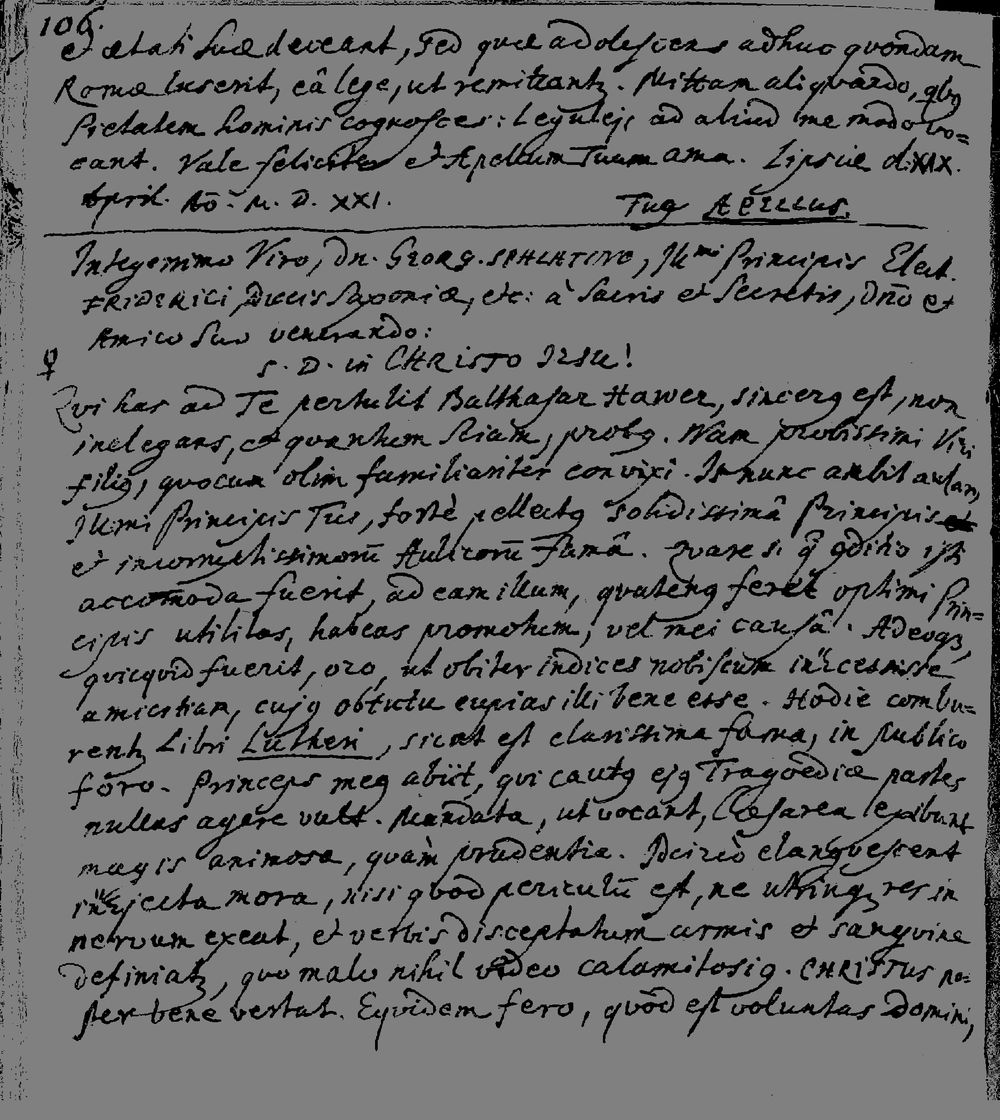 106.
et ætati suæ deceant, sed quæ adolescens adhuc quondam
Romæ luserit, eâ lege, ut remittantʒ. Mittam aliquando, qbq
pietatem hominis cognosces: Leguleji ad aliud me modo vo=
cant. Vale feliciter et Apellum Tuum ama. Lipsiæ d. XIX.
April. Aō. M. D. XXI. Tuq Apellus.
Integerrimo Viro, Dn. GEORG. SPALATINO, Illmi Principis Elect.
FRIDERICI, Ducis Saxoniæ, etc: à Sacris et Secretis, Dnō et
Amico suo venerando:
S. D. in CHRISTO JESU!
Qvi has ad Te pertulit Balthasar Hawer, sincerq est, non
inelegans, et quantum sciam, probq. Nam probissimi Viri
filiq, quocum olim familiariter convixi. Is nunc ambit aulam
Illmi Principis Tui, fortè pellectq solidissimâ Principis
et incorruptissimorū Aulicorū famâ. Quare si q̄ gditio isti
accom̄oda fuerit, ad eam illum, quatenq feret optimi Prin=
cipis utilitas, habeas promotum, vel mei causâ. Adeoqʒ,
quicquid fuerit, oro, ut obiter indices nobiscum intercessisse
amicitiam, cujq obtutu cupias illi bene esse. Hodie combu=
rentʒ Libri Lutheri, sicut est clarissima fama, in publico
foro. Princeps meq abiit, qui cautq ejq Tragoediæ partes
nullas agere vult. Mandata, ut vocant, Cæsarea
magis animosa, quàm prudentia. Idcircò elanguescent
interjecta mora, nisi quod periculū est, ne utrinqʒ res in
nervum exeat, et verbis disceptatum armis et sanguine
definiatʒ, quo malo nihil video calamitosiq. CHRISTUS no=
ster bene vertat. Eqvidem fero, quod est voluntas Domini,